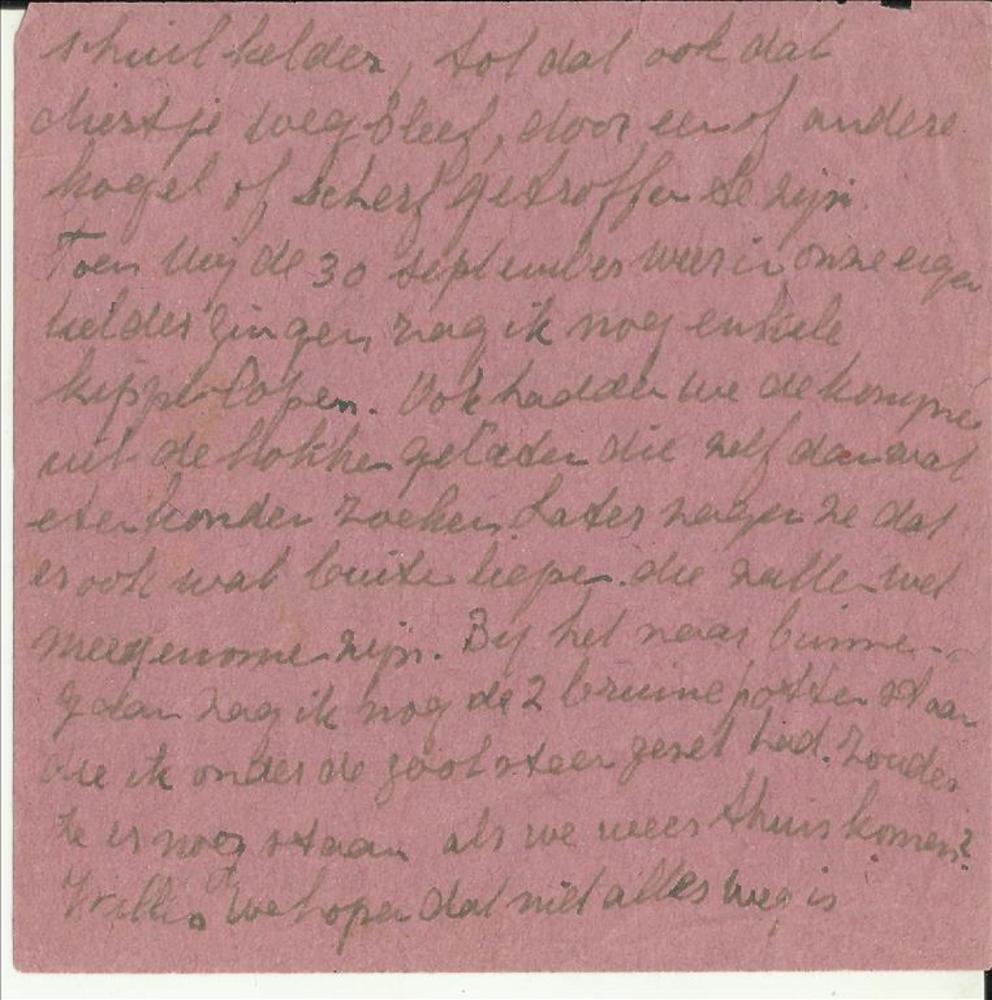 schuilkelder, tot dat ook dat
diertje wegbleef, door een of andere
kogel of scherf getroffen te zijn.
Toen wij de 30 september weer in onze eigen
kelder gingen, zag ik nog enkele
kippe lopen. Ook hadden we de konijne
uit de hokken gelaten die zelf dan wat
eten konden zoeken. Later zagen ze dat
er ook wat buiten liepen. die zulle wel
meegenomen zijn. Bij het naar binne-
gdan zag ik nog de 2 bruine potten staan
die ik onder de gootsteen gezet had. Zouden
ze er nog staan als we weer thuis komen?
we hopen dat niet alles weg is